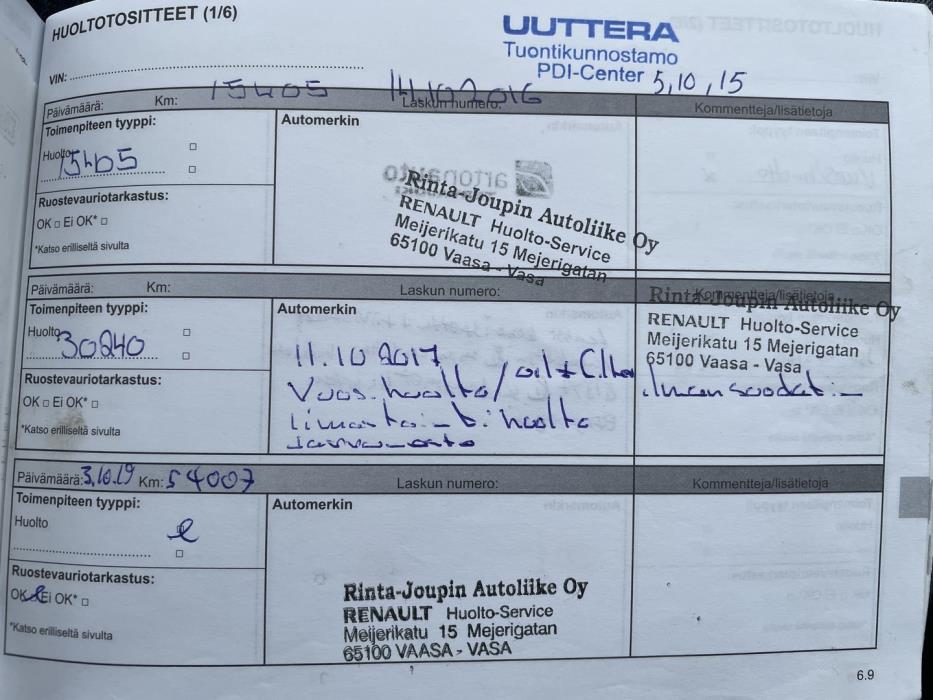 HUOLTOTOSITTEET (1/6)
UUTTERA
Tuontikunnostamo
PDI-Center 5,10,15
VIN:
Päivämäärä: Km: 15405 14.10.2016 Laskun numero: Kommentteja/lisätietoja
Toimenpiteen tyyppi:
Automerkin
Huolto
15405
Ruostevauriotarkastus:
OK □ Ei OK* □
*Katso erilliseltä sivulta
Rinta-Joupin Autoliike Oy
RENAULT Huolto-Service
Meijerikatu 15 Mejerigatan
65100 Vaasa - Vasa
Päivämäärä: Km: Laskun numero: Kommentteja/lisätietoja
Toimenpiteen tyyppi:
Automerkin
Huolto
30240
Ruostevauriotarkastus:
OK □ Ei OK* □
*Katso erilliseltä sivulta
11.10 2017
Vuos.huolto/
huolto
Rinta-Joupin Autoliike Oy
RENAULT Huolto-Service
Meijerikatu 15 Mejerigatan
65100 Vaasa - Vasa
Päivämäärä: 3.10.19 Km: 54007 Laskun numero: Kommentteja/lisätietoja
Toimenpiteen tyyppi:
Automerkin
Huolto
Ruostevauriotarkastus:
OK Ei OK* □
*Katso erilliseltä sivulta
Rinta-Joupin Autoliike Oy
RENAULT Huolto-Service
Meijerikatu 15 Mejerigatan
65100 VAASA - VASA
6.9